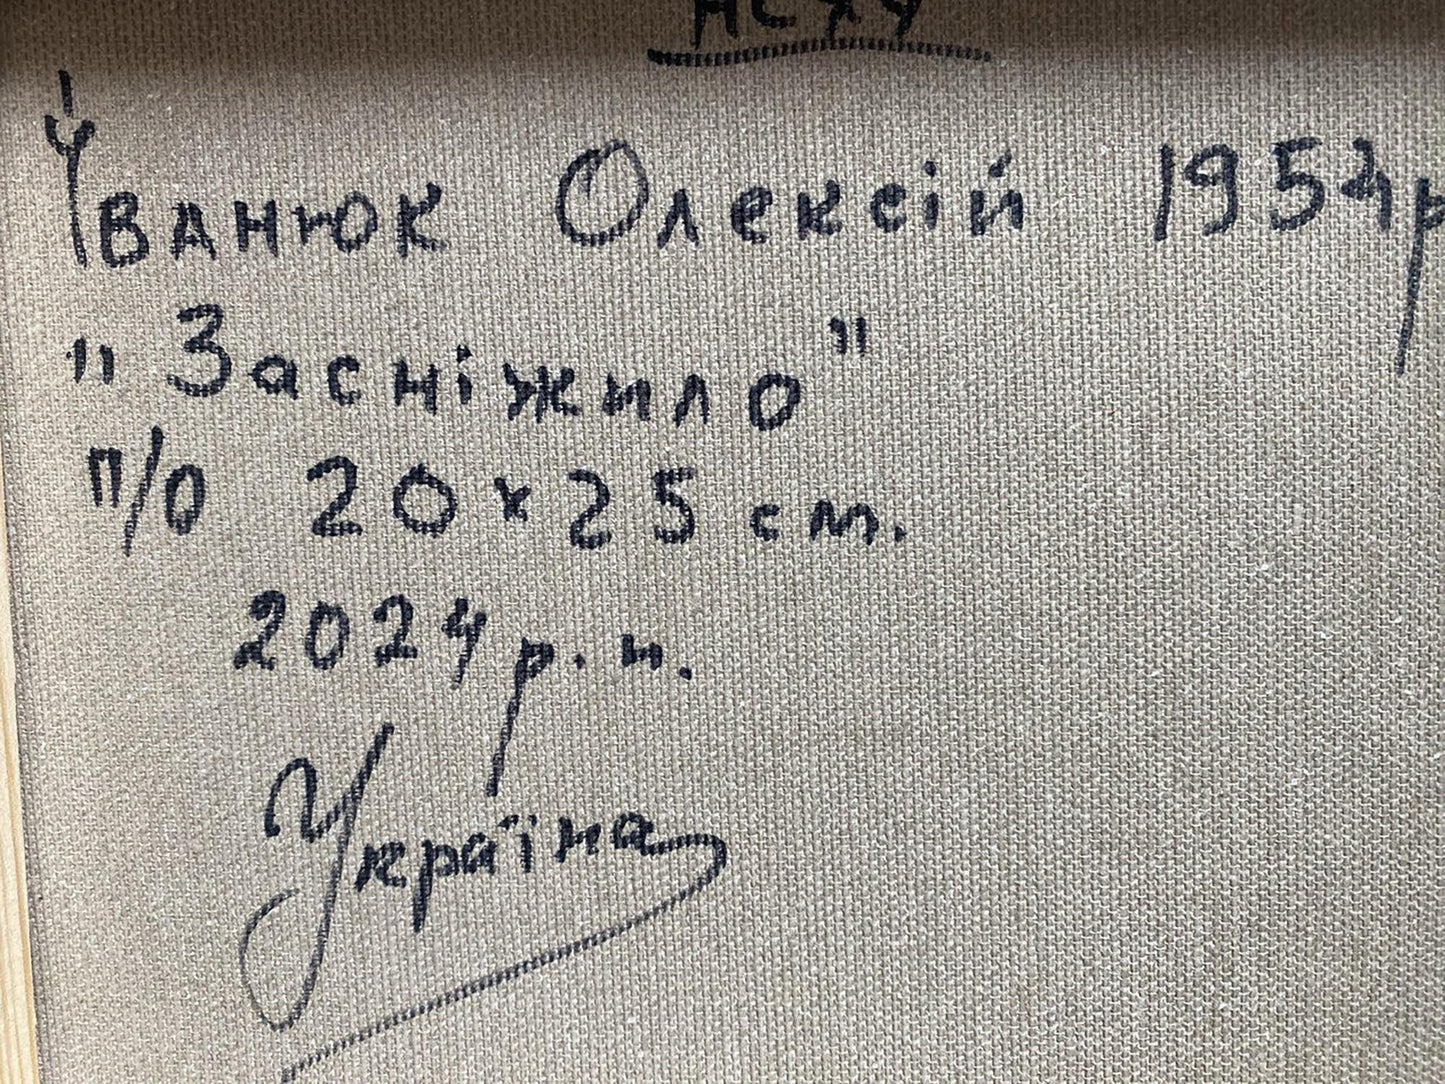 НСХУ
Іванюк Олексій 1954р
"Засніжило"
п/о 20х25 см.
2024р.н.
Україна